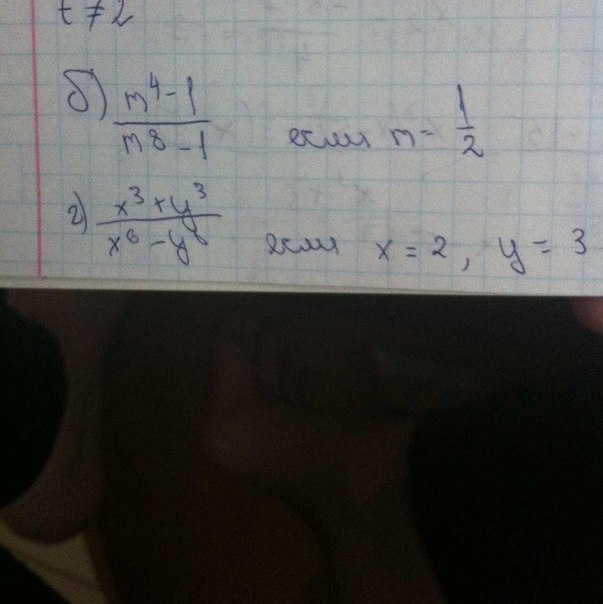 t ≠ 2
б) (m⁴ - 1)/(m⁸ - 1) если m = 1/2
г) (x³ + y³)/(x⁶ - y⁶) если x = 2, y = 3